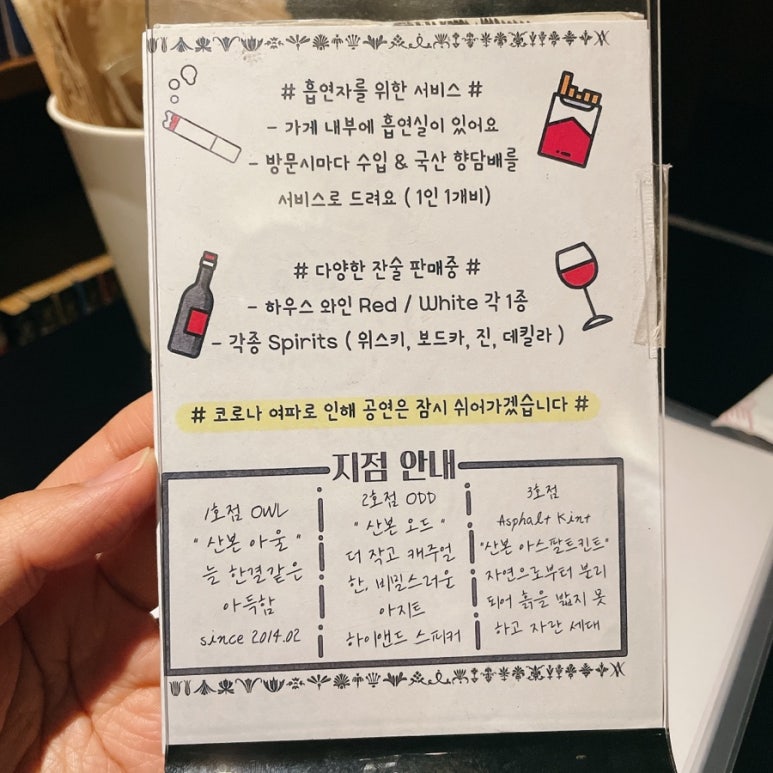 # 흡연자를 위한 서비스 #
- 가게 내부에 흡연실이 있어요
- 방문시마다 수입 & 국산 향담배를
서비스로 드려요 ( 1인 1개비)
# 다양한 잔술 판매중 #
- 하우스 와인 Red / White 각 1종
- 각종 Spirits ( 위스키, 보드카, 진, 데킬라 )
# 코로나 여파로 인해 공연은 잠시 쉬어가겠습니다 #
지점 안내
1호점 OWL
" 산본 아울 "
늘 한결같은
아득함
since 2014.02
2호점 ODD
" 산본 오드 "
더 작고 캐주얼
한, 비밀스러운
아지트
하이앤드 스피커
3호점
Asphalt Kint
"산본 아스팔트킨트"
자연으로부터 분리
되어 흙을 밟지 못
하고 자란 세대